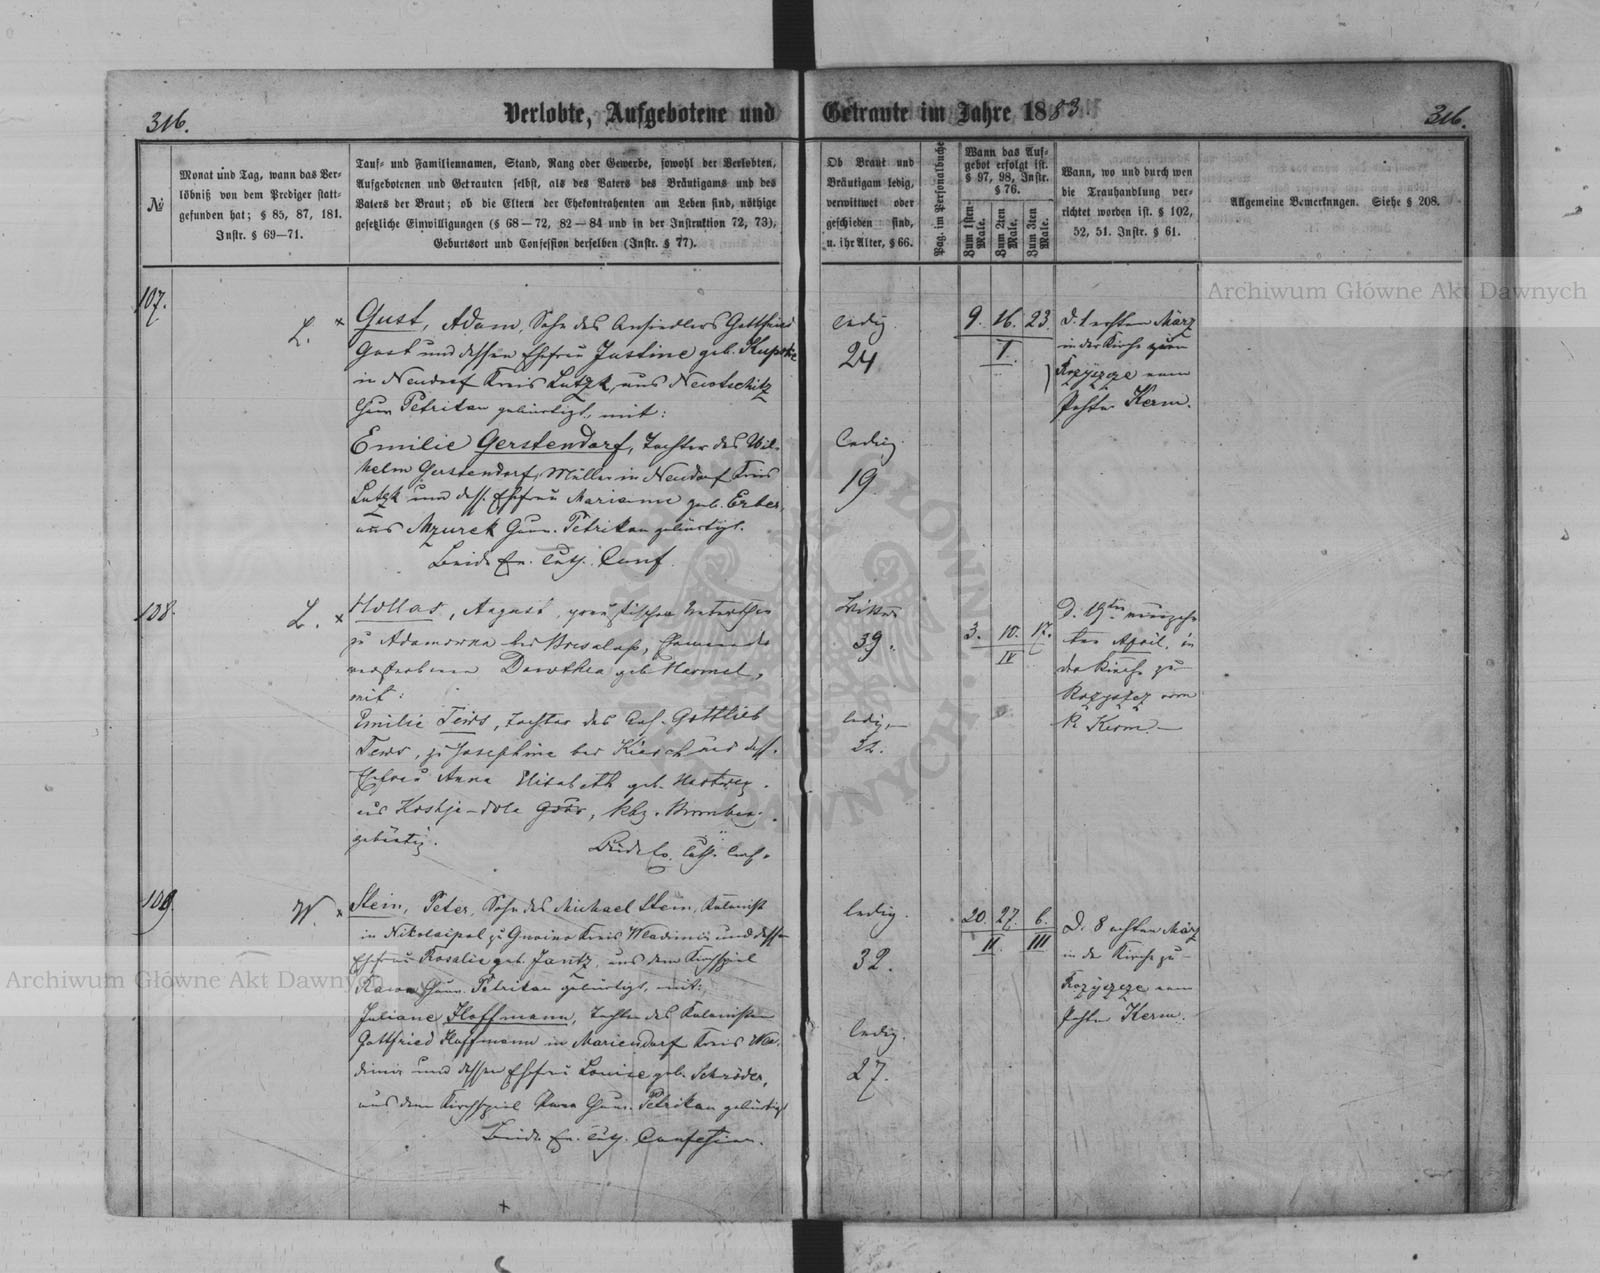 316.
Verlobte, Aufgebotene und
Getraute im Jahre 1883.
316.
№
Monat und Tag, wann das Ver-
löbniß von dem Prediger statt-
gefunden hat; § 85, 87, 181.
Instr. § 69—71.
Tauf- und Familiennamen, Stand, Rang oder Gewerbe, sowohl der Verlobten,
Aufgebotenen und Getrauten selbst, als des Vaters des Bräutigams und des
Vaters der Braut; ob die Eltern der Ehekontrahenten am Leben sind, nöthige
gesetzliche Einwilligungen (§ 68—72, 82—84 und in der Instruktion 72, 73),
Geburtsort und Confession derselben (Instr. § 77).
Ob Braut und
Bräutigam ledig,
verwittwet oder
geschieden sind,
u. ihr Alter, § 66.
Pag. im Personalbuche
Wann das Auf-
gebot erfolgt ist.
§ 97, 98, Instr.
§ 76.
Zum 1sten Male.
Zum 2ten Male.
Zum 3ten Male.
Wann, wo und durch wen
die Trauhandlung ver-
richtet worden ist. § 102,
52, 51. Instr. § 61.
Allgemeine Bemerkungen. Siehe § 208.
107.
L. x
Gust, Adam, Sohn des Ansiedlers Gottfried
Gust und dessen Ehefrau Justine geb.
in Neudorf Kreis Lutzk, aus
Gouv. Petrikau gebürtig, mit:
Emilie Gerstendorf, Tochter des Wil-
helm Gerstendorf, Müller in Neudorf Kreis
Lutzk und dess. Ehefrau Marianne geb. Erber,
aus Mzurek Gouv. Petrikau gebürtigt.
Beide Ev. Luth. Conf.
ledig.
24
ledig.
19.
9. 16. 23.
I.
d. 1 ersten März
in der Kirche zu
Rozyszcze vom
Pastor Kerm.
108.
L. x
Hollas, August, preußischer Unterthan
zu Adamowka bei
verstorbenen Dorothea geb.
mit:
Emilie Tews, Tochter des Gottlieb
Tews, zu Josephine bei und dess.
Ehefrau Anna Elisabeth geb. Hartwig
aus Rbz. Bromberg
gebürtig.
Beide Ev. Luth. Conf.
Wittwer
39.
ledig.
22.
3. 10. 17.
IV
D. 19ten neunzehn-
ten April, in
der Kirche zu
vom
P. Kerm.
109.
W. x
Stein, Peter, Sohn des Michael Stein, Kolonist
in Nikolaipol zu Kreis Wladimir und dessen
Ehefrau Rosalie geb. Jantz, aus dem Kirchspiel
Rawa Gouv. Petrikau gebürtigt, mit:
Juliane Hoffmann, Tochter des Kolonisten
Gottfried Hoffmann in Mariendorf Kreis Wla-
dimir und dessen Ehefrau Louise geb. Schröder,
aus dem Kirchspiel Rawa Gouv. Petrikau gebürtigt
Beide Ev. Luth. Confession.
ledig.
32.
ledig.
27.
20. 27. 6.
II. III
D. 8 achten März
in der Kirche zu
Rozyszcze vom
Pastor Kerm.
Archiwum Główne Akt Dawnych
Archiwum Główne Akt Dawnych